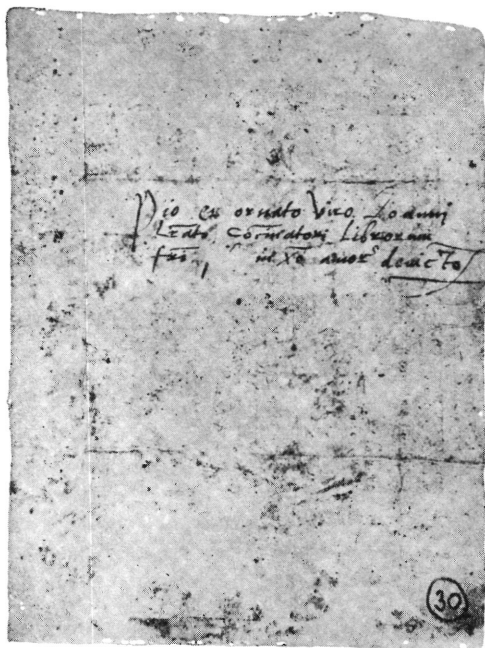 Pio en ornato viro Joanni
Lr̄ato Cōm̄catori Librorum
fri, in X̄o amor̄ deuicto
30